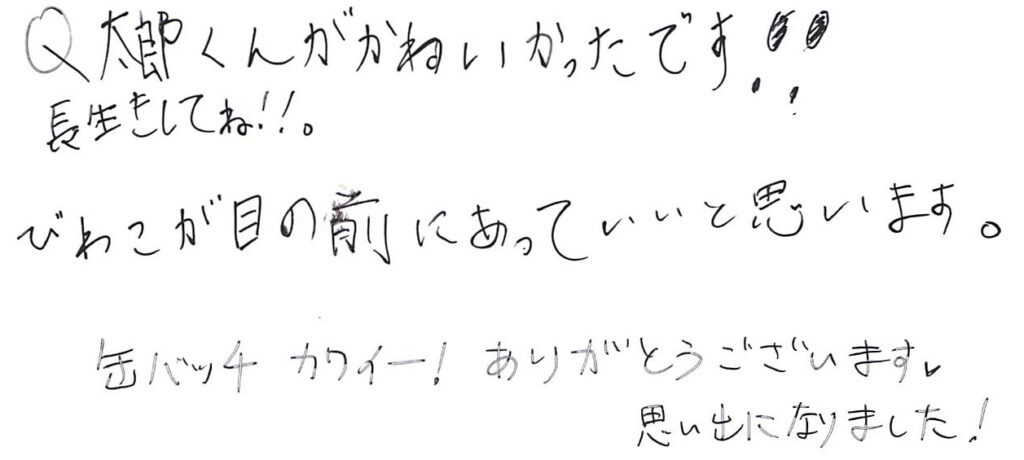 Q太郎くんがかわいかったです!!
長生きしてね!!。
びわこが目の前にあっていいと思います。
缶バッチ カワイー! ありがとうございます。
思い出になりました!